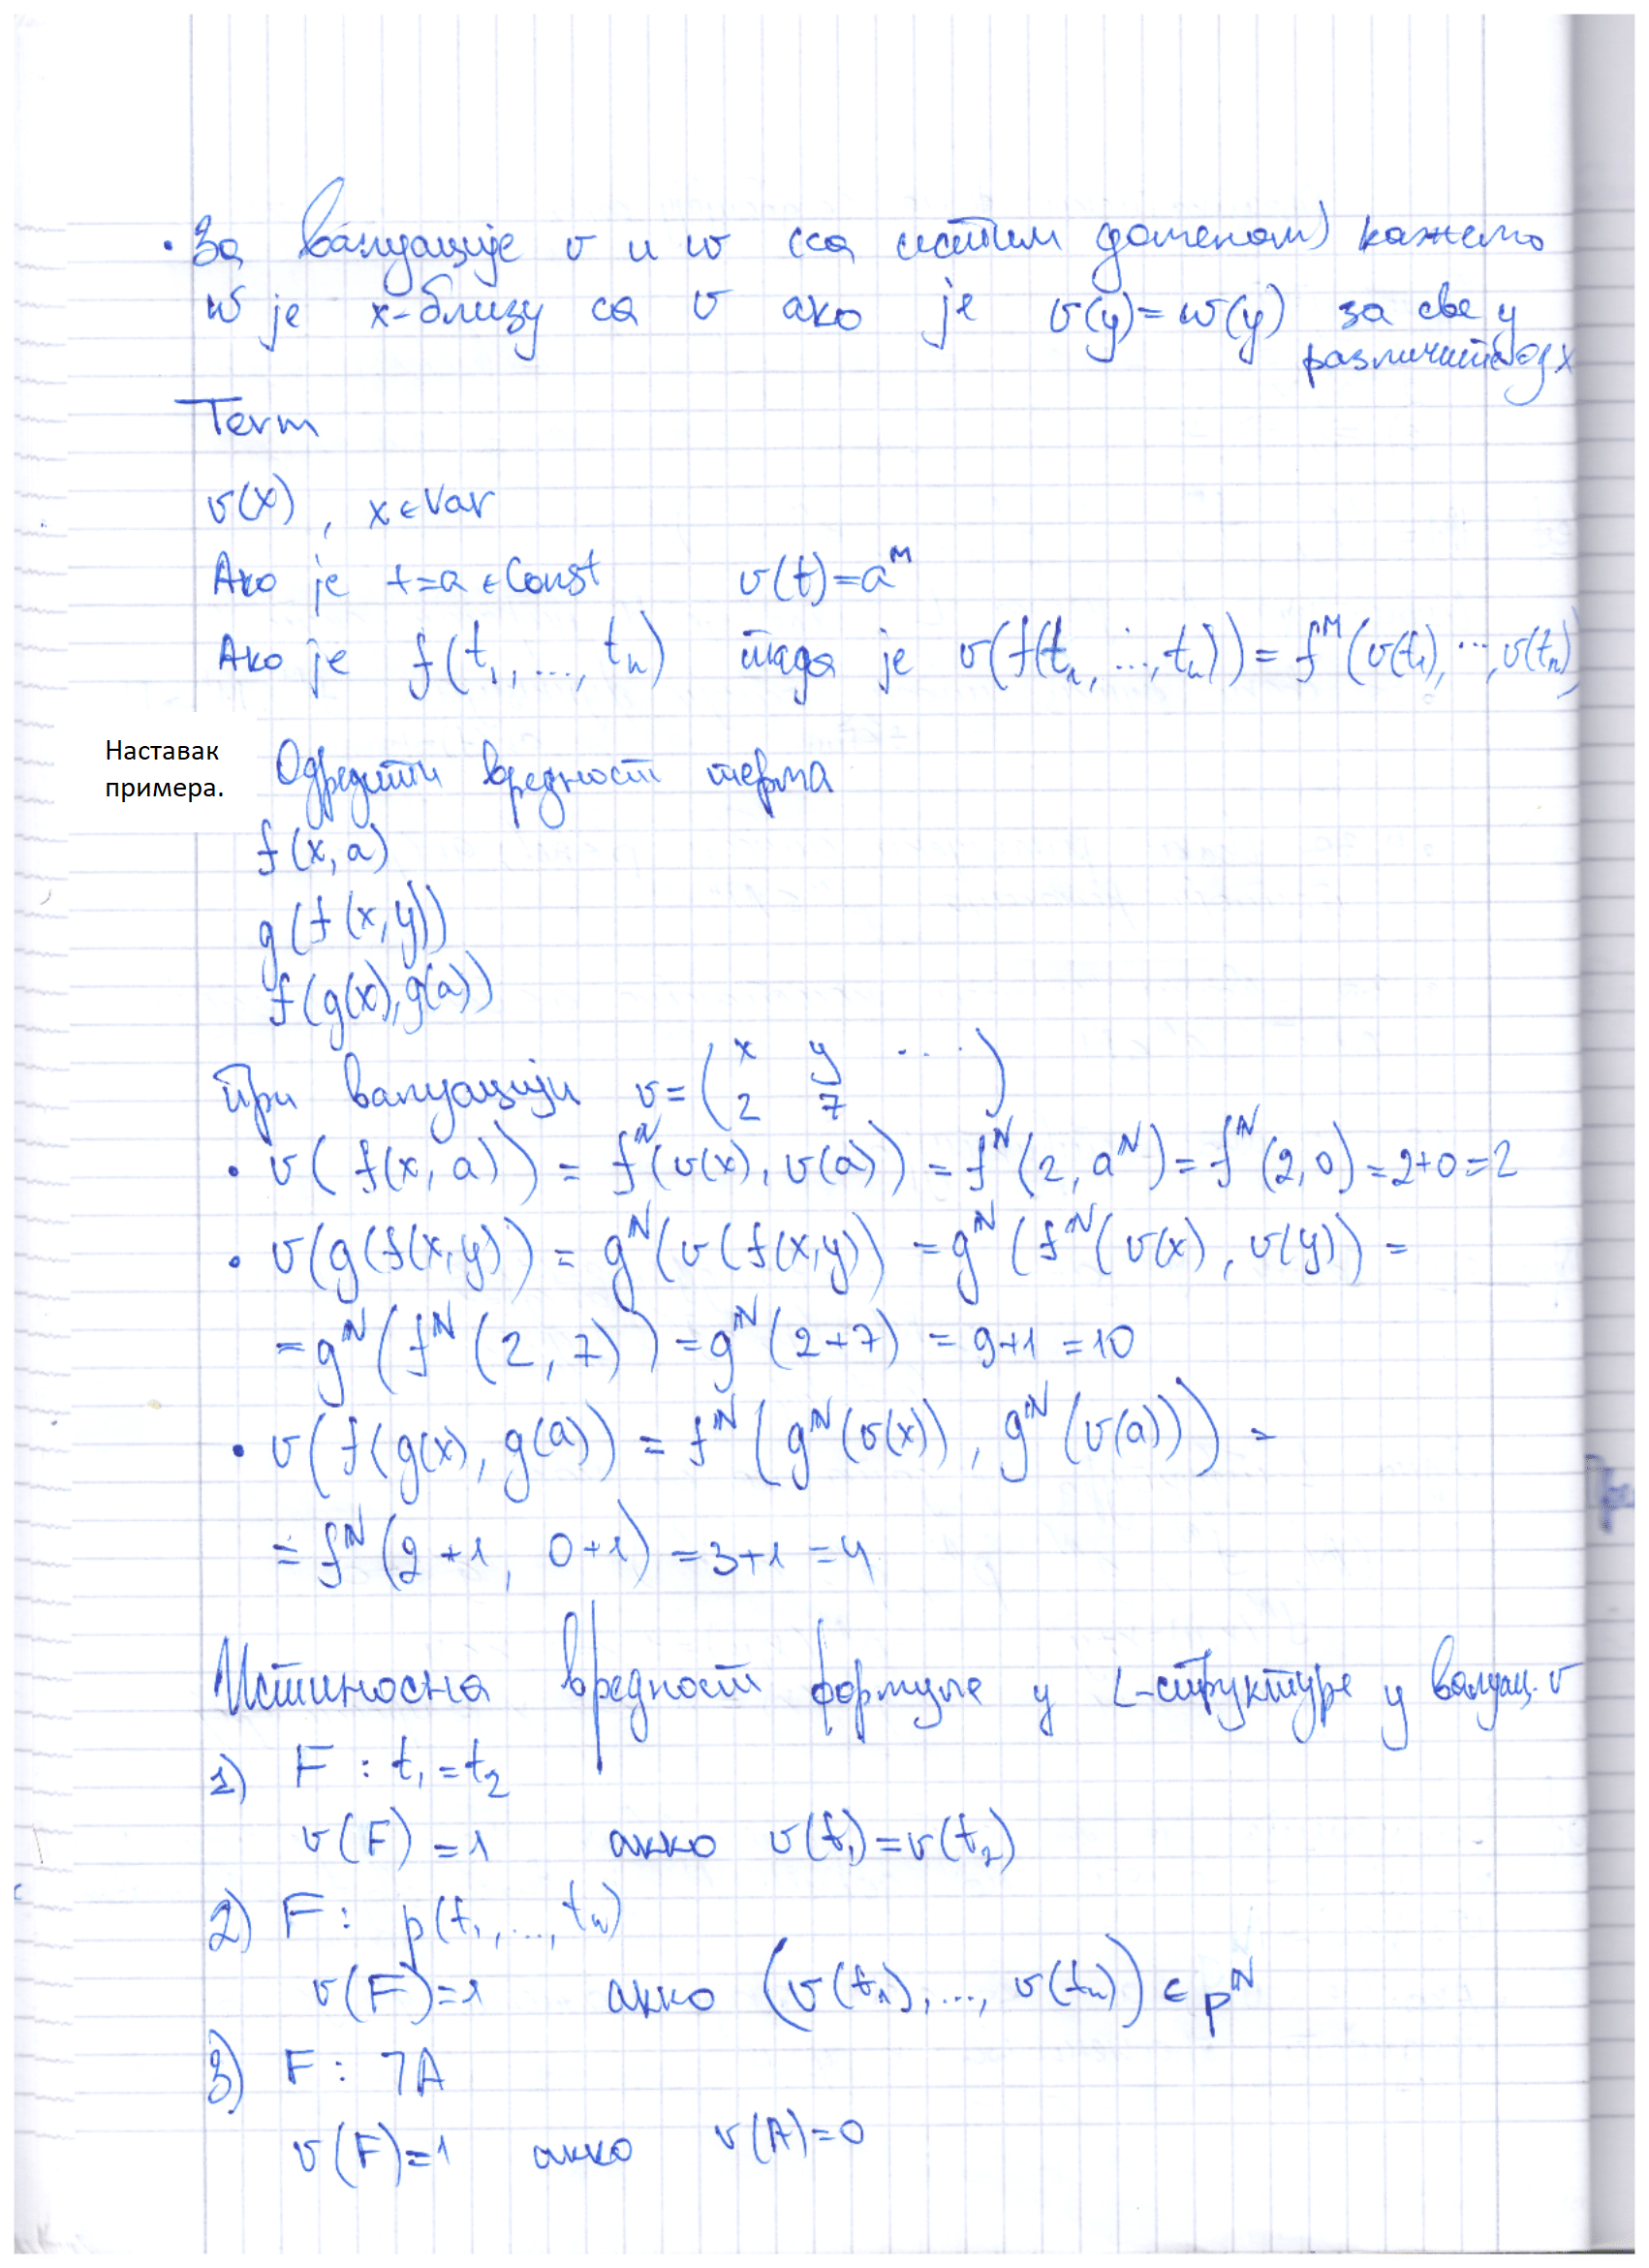 • За валуације v и w (са истим доменом) кажемо
w је x-близу са v ако је v(y)=w(y) за све y
различите од x
Term
v(x), x∈Var
Ако је t=a∈Const v(t)=a^M
Ако је f(t₁,...,tₙ) тада је v(f(t₁,...,tₙ))=f^M(v(t₁),...,v(tₙ))
Наставак
примера.
Одредити вредност терма
f(x,a)
g(f(x,y))
f(g(x),g(a))
при валуацији v=(x y ...
2 7)
• v(f(x,a)) = f^N(v(x),v(a)) = f^N(2,a^N) = f^N(2,0) = 2+0=2
• v(g(f(x,y)) = g^N(v(f(x,y)) = g^N(f^N(v(x),v(y)) =
= g^N(f^N(2,7)) = g^N(2+7) = 9+1 = 10
• v(f(g(x),g(a)) = f^N(g^N(v(x)), g^N(v(a))) =
= f^N(2+1, 0+1) = 3+1 = 4
Истиносна вредност формуле у L-структуре у валуац. v
1) F : t₁=t₂
v(F)=1 акко v(t₁)=v(t₂)
2) F : p(t₁,...,tₙ)
v(F)=1 акко (v(t₁),...,v(tₙ))∈p^N
3) F : ¬A
v(F)=1 акко v(A)=0